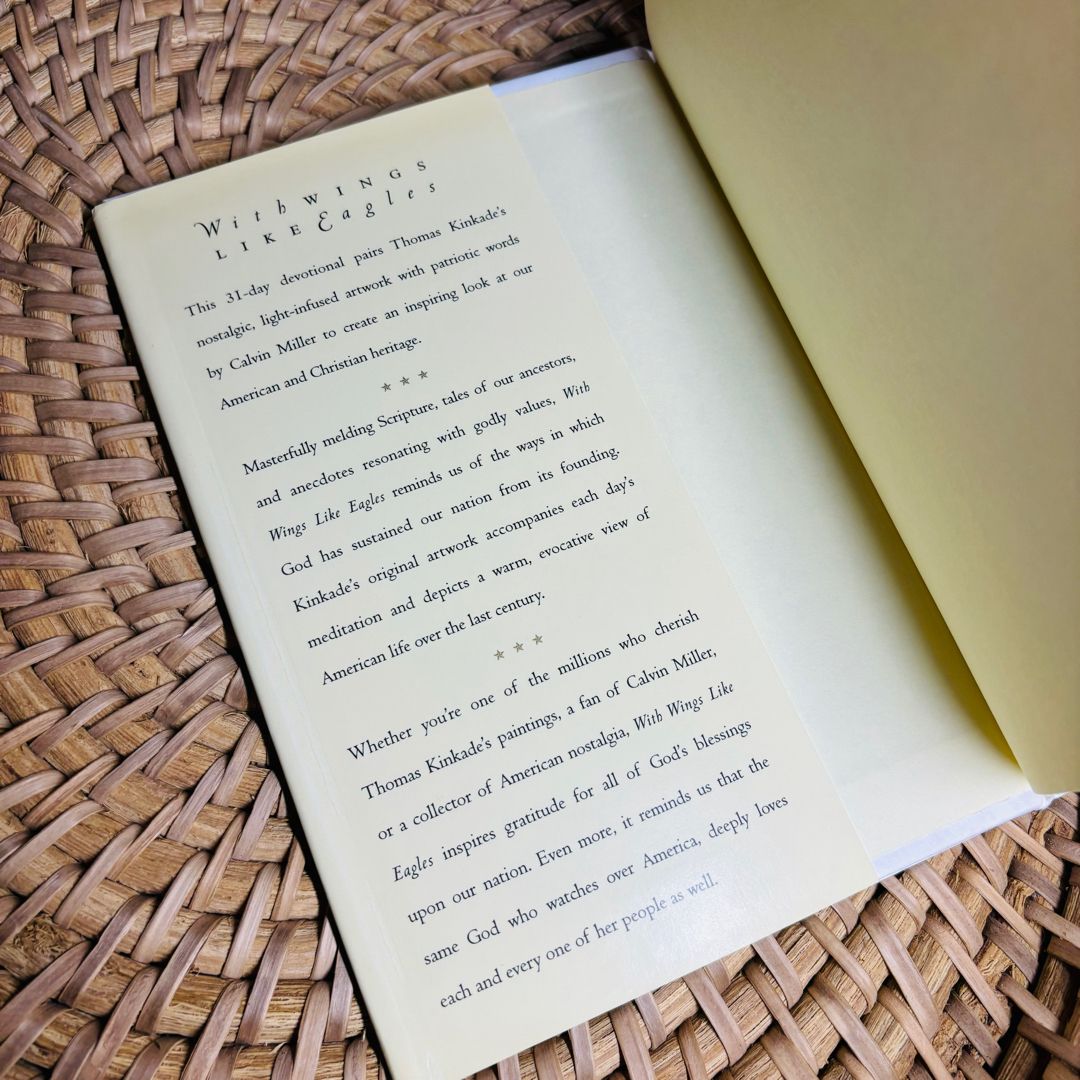 With WINGS
LIKE Eagles
This 31-day devotional pairs Thomas Kinkade's
nostalgic, light-infused artwork with patriotic words
by Calvin Miller to create an inspiring look at our
American and Christian heritage.
Masterfully melding Scripture, tales of our ancestors,
and anecdotes resonating with godly values, With
Wings Like Eagles reminds us of the ways in which
God has sustained our nation from its founding.
Kinkade's original artwork accompanies each day's
meditation and depicts a warm, evocative view of
American life over the last century.
Whether you're one of the millions who cherish
Thomas Kinkade's paintings, a fan of Calvin Miller,
or a collector of American nostalgia, With Wings Like
Eagles inspires gratitude for all of God's blessings
upon our nation. Even more, it reminds us that the
same God who watches over America, deeply loves
each and every one of her people as well.